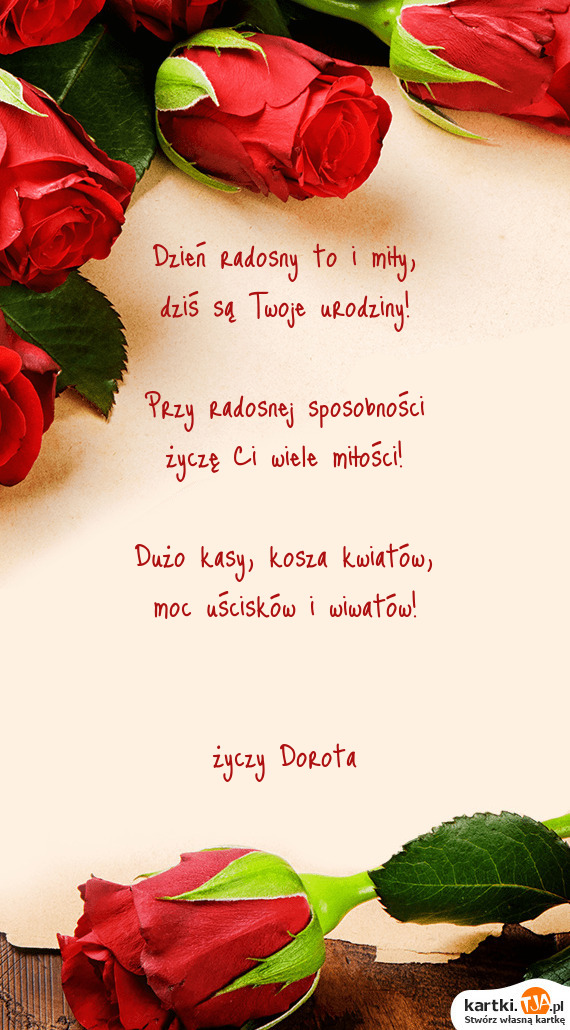 Dzień radosny to i miły,
dziś są Twoje urodziny!
Przy radosnej sposobności
życzę Ci wiele miłości!
Dużo kasy, kosza kwiatów,
moc uścisków i wiwatów!
życzy Dorota
kartki.TJA.pl
Stwórz własną kartkę